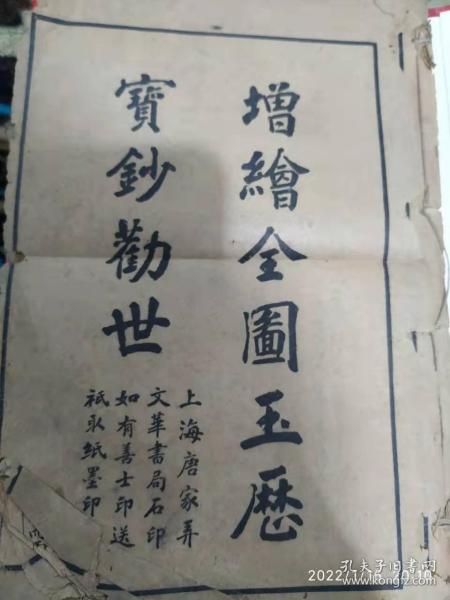 增繪全圖玉歷
寶鈔勸世
上海唐家弄
文華書局石印
如有善士印送
祇取紙墨印
孔夫子旧书网